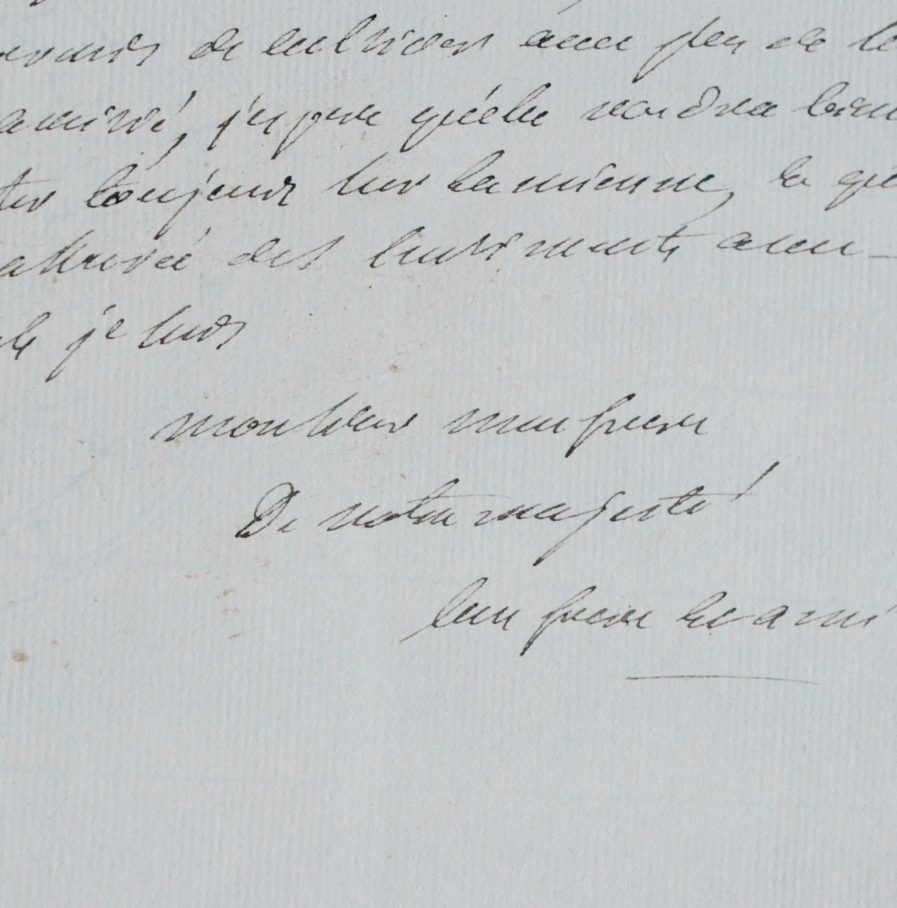 de cultiver avec plus de
amitié, j'espere qu'elle voudra bien
toujours sur la mienne, la
des sentiments avec
je suis
Monsieur mon frere
De votre majesté
bon frere et ami